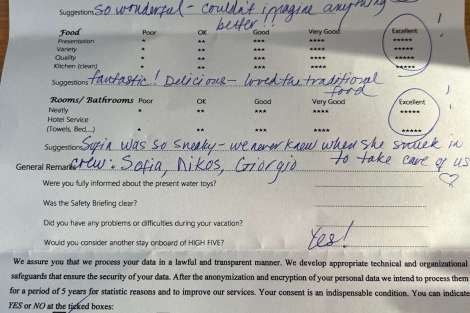 Suggestions So wonderful - couldn't imagine anything
better!!
Food Poor OK Good Very Good Excellent
Presentation * ** *** **** *****
Variety * ** *** **** *****
Quality * ** *** **** *****
Kitchen (clean) * ** *** **** *****
Suggestions fantastic! Delicious - loved the traditional
food
Rooms/ Bathrooms Poor OK Good Very Good Excellent
Neatly * ** *** **** *****
Hotel Service
(Towels, Bed....) * ** *** **** *****
Suggestions Sofia was so sneaky - we never knew when she snuck in
to take care of us
General Remarks Crew: Sofia, Nikos, Giorgio
Were you fully informed about the present water toys?
Was the Safety Briefing clear?
Did you have any problems or difficulties during your vacation?
Would you consider another stay onboard of HIGH FIVE? Yes!
We assure you that we process your data in a lawful and transparent manner. We develop appropriate technical and organizational
safeguards that ensure the security of your data. After the anonymization and encryption of your personal data we intend to process them
for a period of 5 years for statistic reasons and to improve our services. Your consent is an indispensable condition. You can indicate
YES or NO at the ticked boxes: